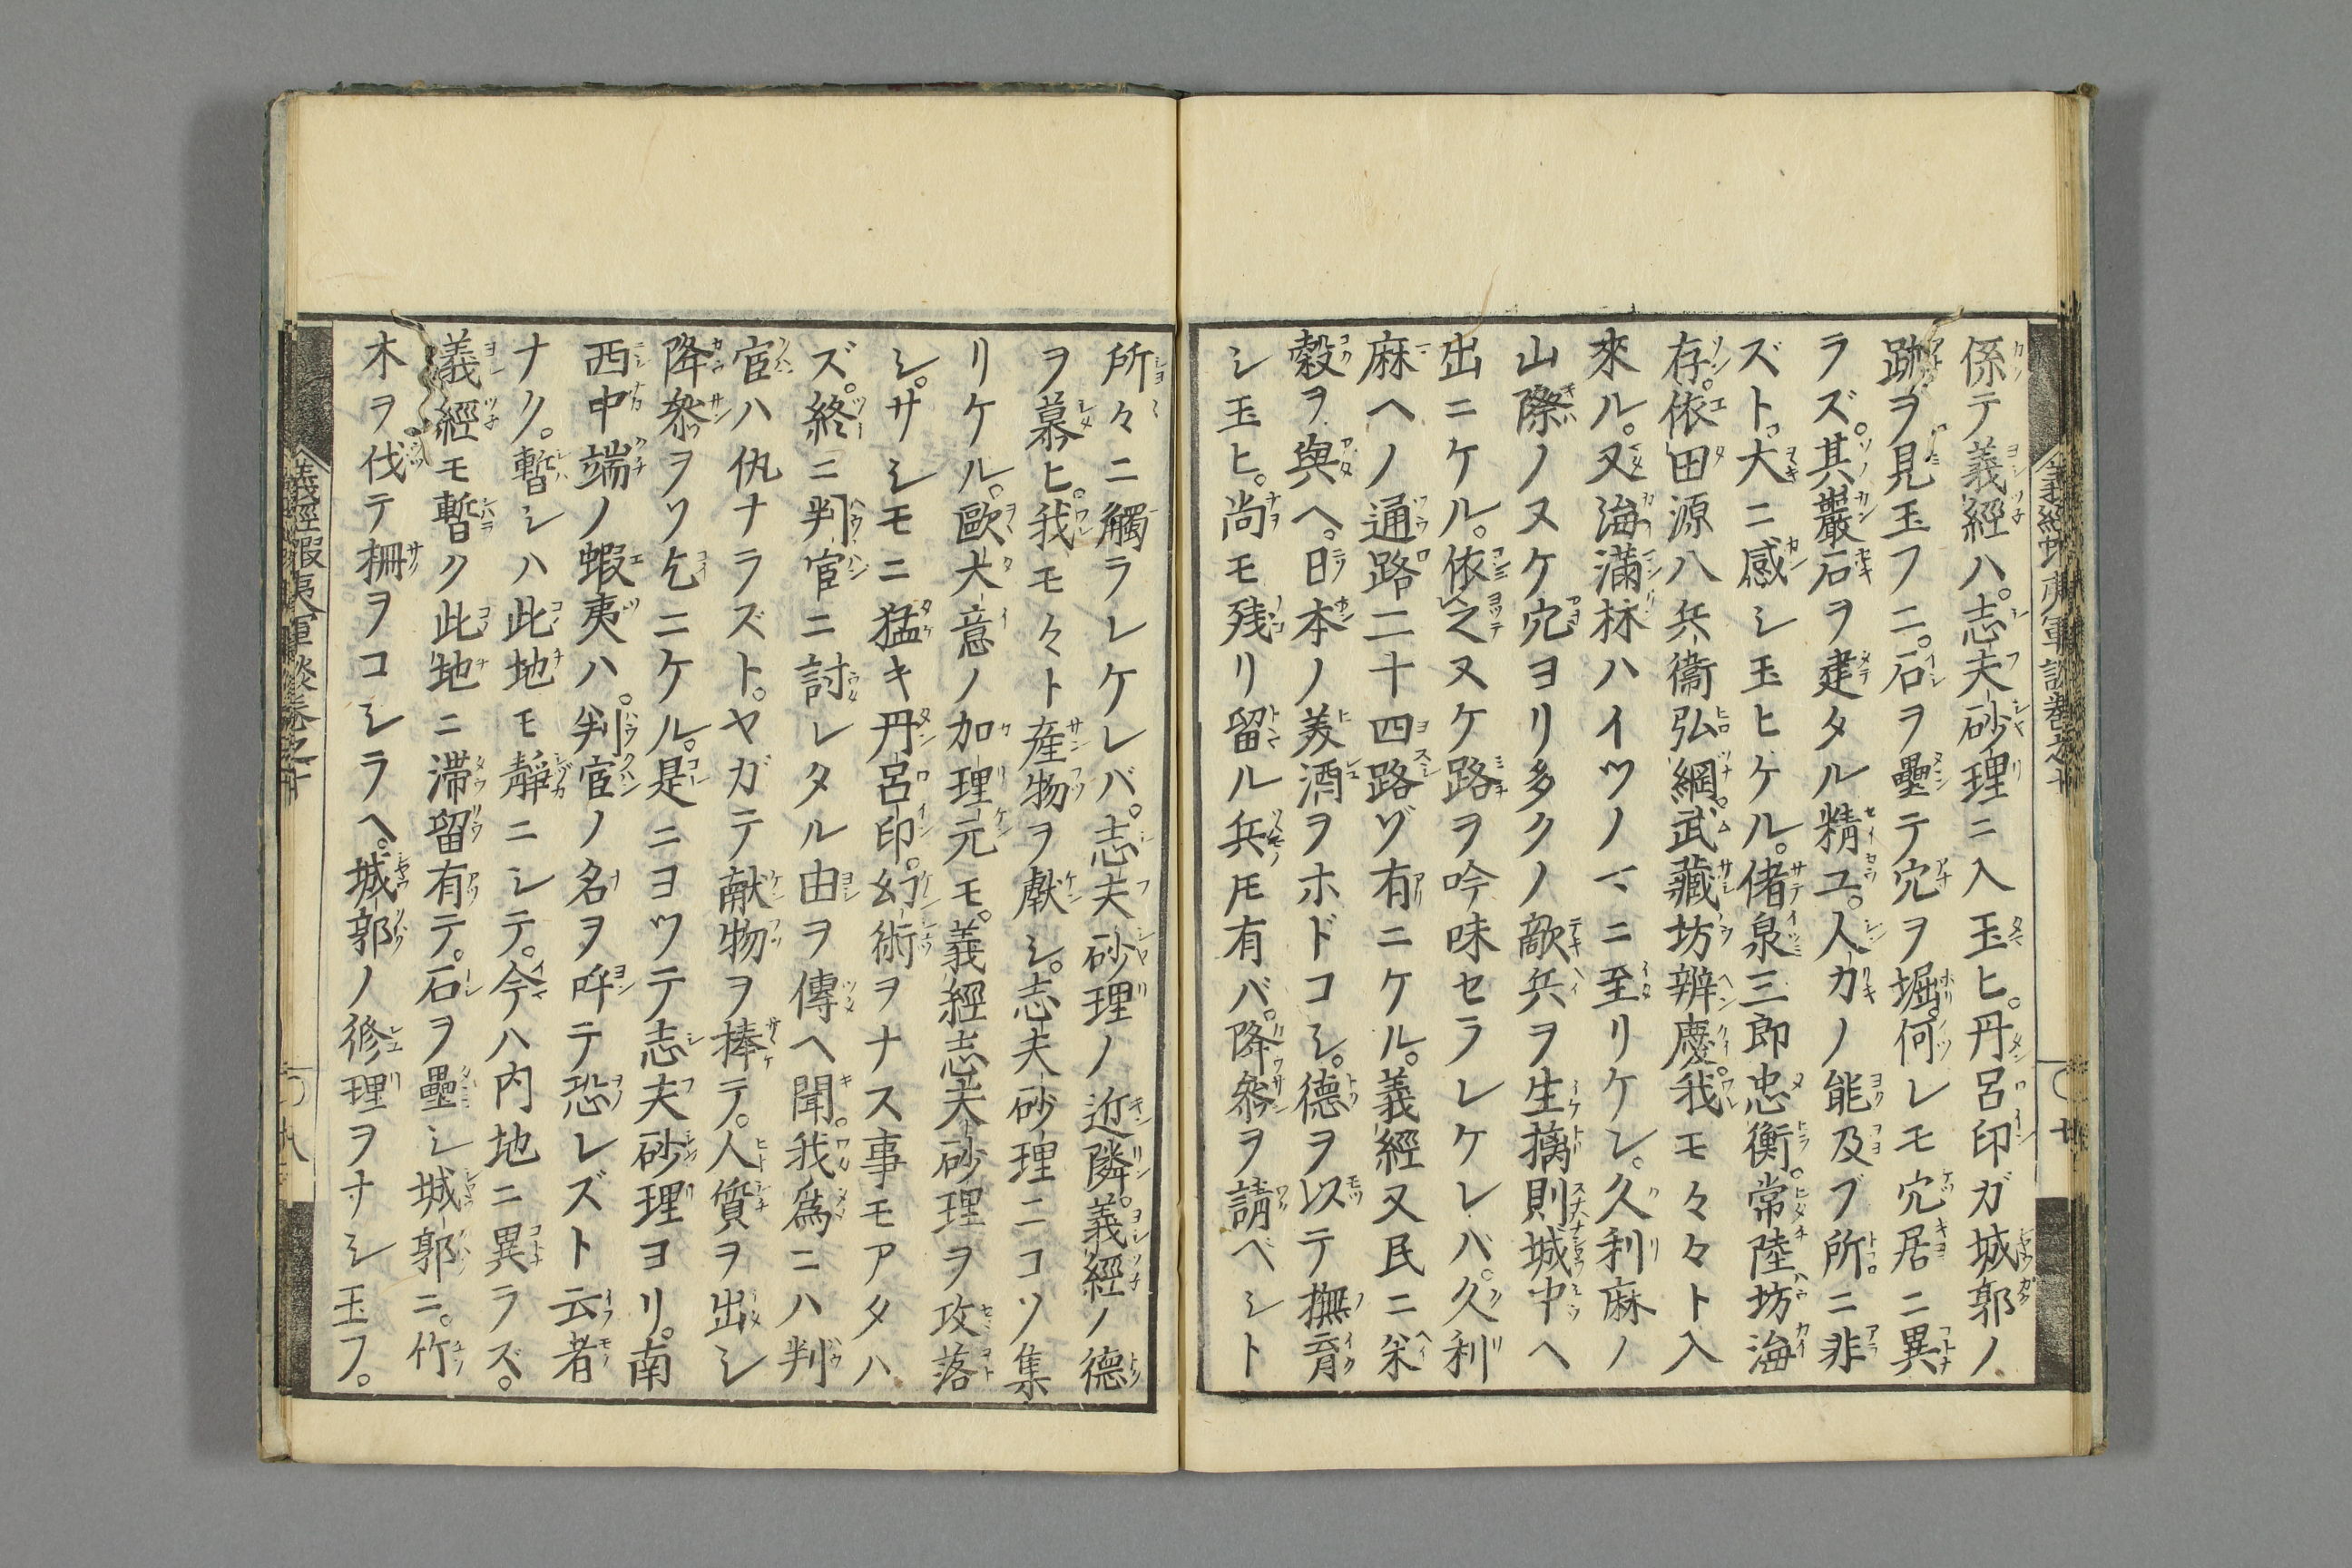 係テ義經ハ。志夫砂理ニ入玉ヒ。丹呂印ガ城郭ノ
跡ヲ見玉フニ。石ヲ壘テ穴ヲ堀。何レモ穴居ニ異
ラズ。其巖石ヲ建タル精ユ。人力ノ能及ブ所ニ非
ズト。大ニ感シ玉ヒケル。偖泉三郎忠衡。常陸坊海
存。依田源八兵衞弘綱。武藏坊辨慶。我モ々々ト入
來ル。又海滿林ハイツノマニ至リケン。久利麻ノ
山際ノヌケ穴ヨリ多クノ敵兵ヲ生擒則城中ヘ
出ニケル。依之ヌケ路ヲ吟味セラレケレバ。久利
麻ヘノ通路二十四路ゾ有ニケル。義經又民ニ米
穀ヲ與ヘ。日本ノ美酒ヲホドコシ。德ヲ以テ撫育
シ玉ヒ。尚モ残リ留ル兵𪜈有バ。降參ヲ請ベシト
所々ニ觸ラレケレバ。志夫砂理ノ近隣。義經ノ德
ヲ慕ヒ。我モ々々ト産物ヲ獻シ。志夫砂理ニコソ集
リケル。歐犬意ノ加理元モ。義經志夫砂理ヲ攻落
シ。サシモニ猛キ丹呂印。幻術ヲナス事モアタハ
ズ。終ニ判官ニ討レタル由ヲ傳ヘ聞。我爲ニハ判
官ハ仇ナラズト。ヤガテ献物ヲ捧テ。人質ヲ出シ
降參ヲソ乞ニケル。是ニヨツテ志夫砂理ヨリ。南
西中端ノ蝦夷ハ。判官ノ名ヲ呼テ恐レズト云者
ナク。暫シハ此地モ靜ニシテ。今ハ内地ニ異ラズ。
義經モ暫ク此地ニ滞留有テ。石ヲ壘シ城郭ニ。竹
木ヲ伐テ柵ヲコシラヘ。城郭ノ修理ヲナシ玉フ。
義經蝦夷軍談卷之十